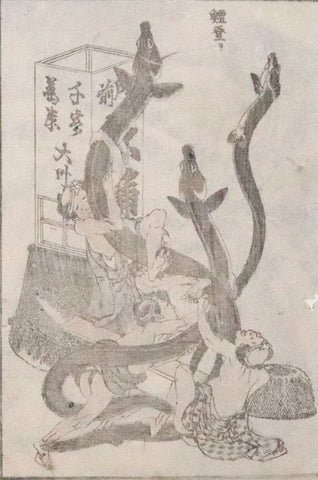 鱣登り
前
千客
萬来
大叶